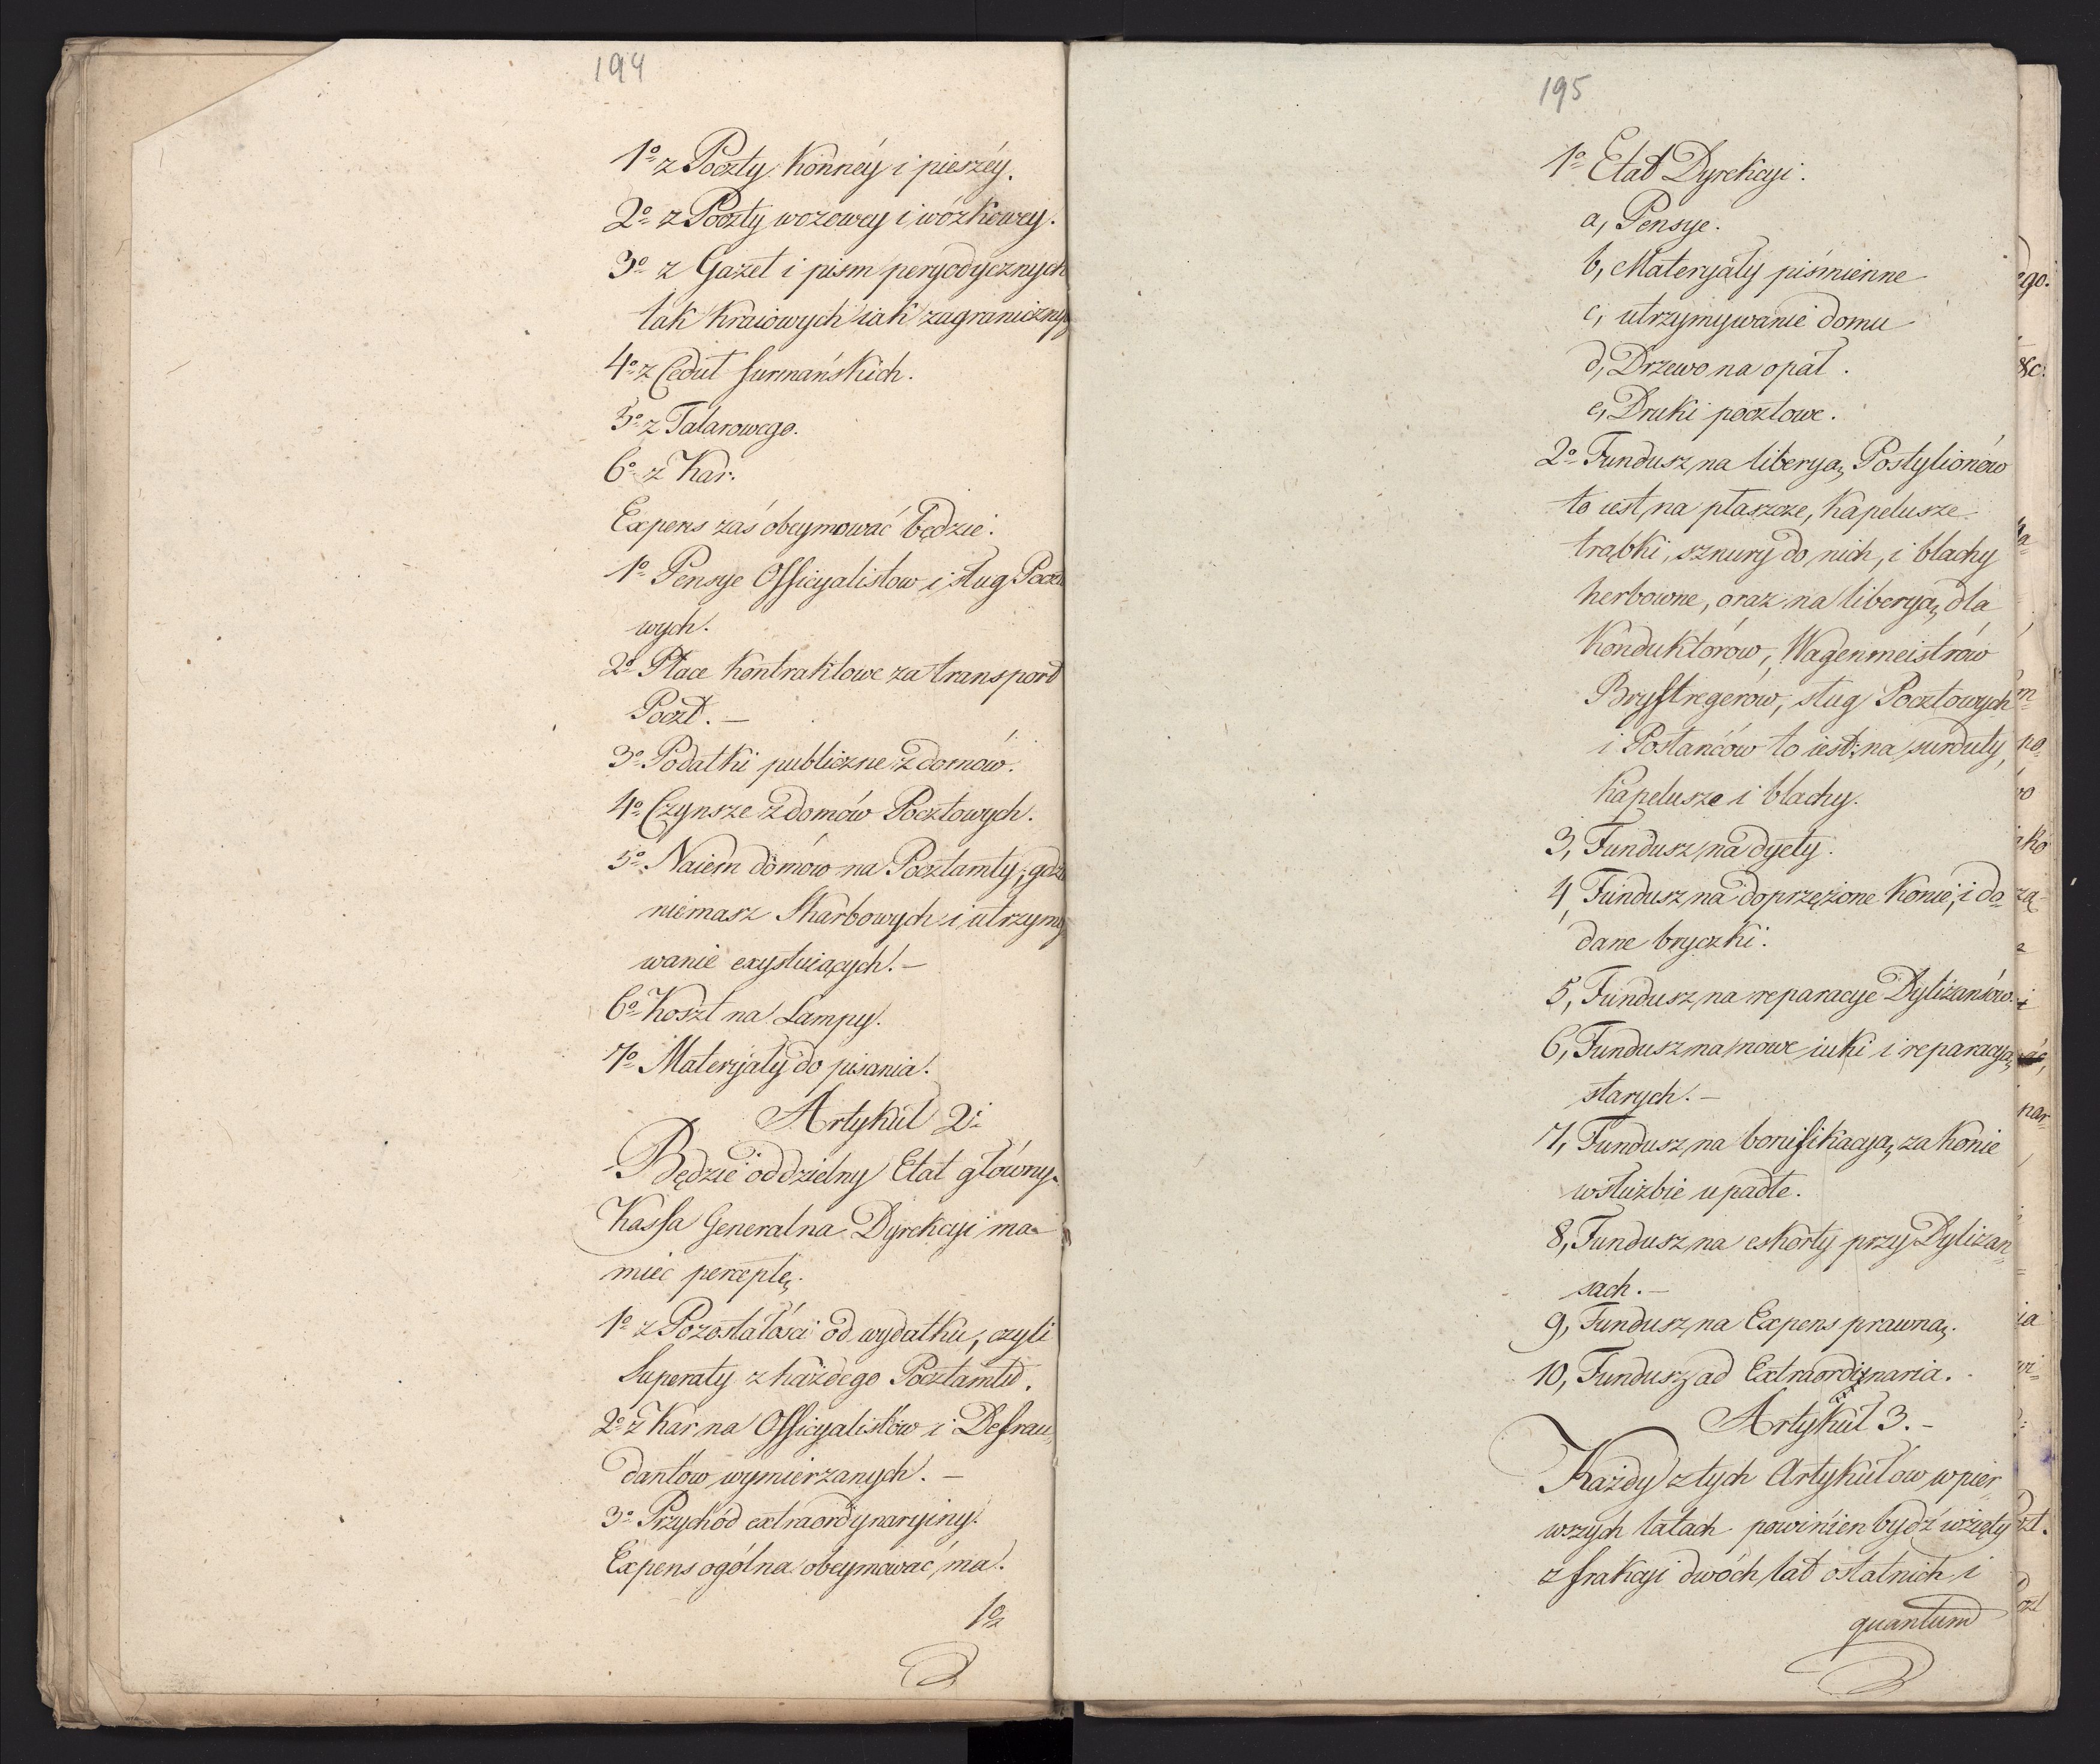 194
1º z Poczty Konnéy i pieszéy.
2º z Poczty wozowey i wózkowey.
3º z Gazet i pism peryodycznych
tak kraiowych iak zagraniczny
4º z Ceduł furmańskich.
5º z Talarowego.
6º z Kar.
Expens zaś obeymować będzie:
1º Pensye Officyalistow i sług Poczto
wych.
2º Płace kontraktowe za transport
Poczt. —
3º Podatki publiczne z domów.
4º Czynsze z domów Pocztowych.
5º Naiem domów na Pocztamty, gdzie
niemasz Skarbowych i utrzymy
wanie exystuiących. —
6º Koszt na Lampy.
7º Materyały do pisania.
Artykuł 2i
Będzie oddzielny Etat główny.
Kassa Generalna Dyrekcyi ma
mieć perceptę.
1º z Pozostałości od wydatku, czyli
Superaty z każdego Pocztamtu.
2º z Kar na Officyalistów i Defrau„
dantów wymierzanych. —
3º Przychód extraordynaryiny.
Expens ogólna obeymować ma.
1º
195
1º Etat Dyrekcyi.
a, Pensye.
b, Materyały piśmienne
c, utrzymywanie domu
d, Drzewo na opał.
e, Druki pocztowe.
2º Fundusz na liberyą Postylionów
to iest, na płaszcze, kapelusze
trąbki, sznury do nich, i blachy
herbowne, oraz na liberyą dla
Konduktorów, Wagenmeistrów
Bryftregerów, sług Pocztowych
i Posłańców to iest: na surduty,
kapelusze i blachy.
3, Fundusz na dyety.
4, Fundusz na doprzężone konie, i do„
dane bryczki.
5, Fundusz na reparacye Dyliżansów.
6, Fundusz na nowe iuki i reparacyą
starych. —
7, Fundusz na bonifikacyą za konie
w służbie upadłe.
8, Fundusz na eskorty przy Dyliżan„
sach. —
9, Fundusz na Expens prawną.
10, Fundusz ad Extraordinaria.
Artykuł 3. —
Każdy z tych Artykułow w pier
wszych latach powinien bydź wzięty
z frakcyi dwóch lat ostatnich i
quantum